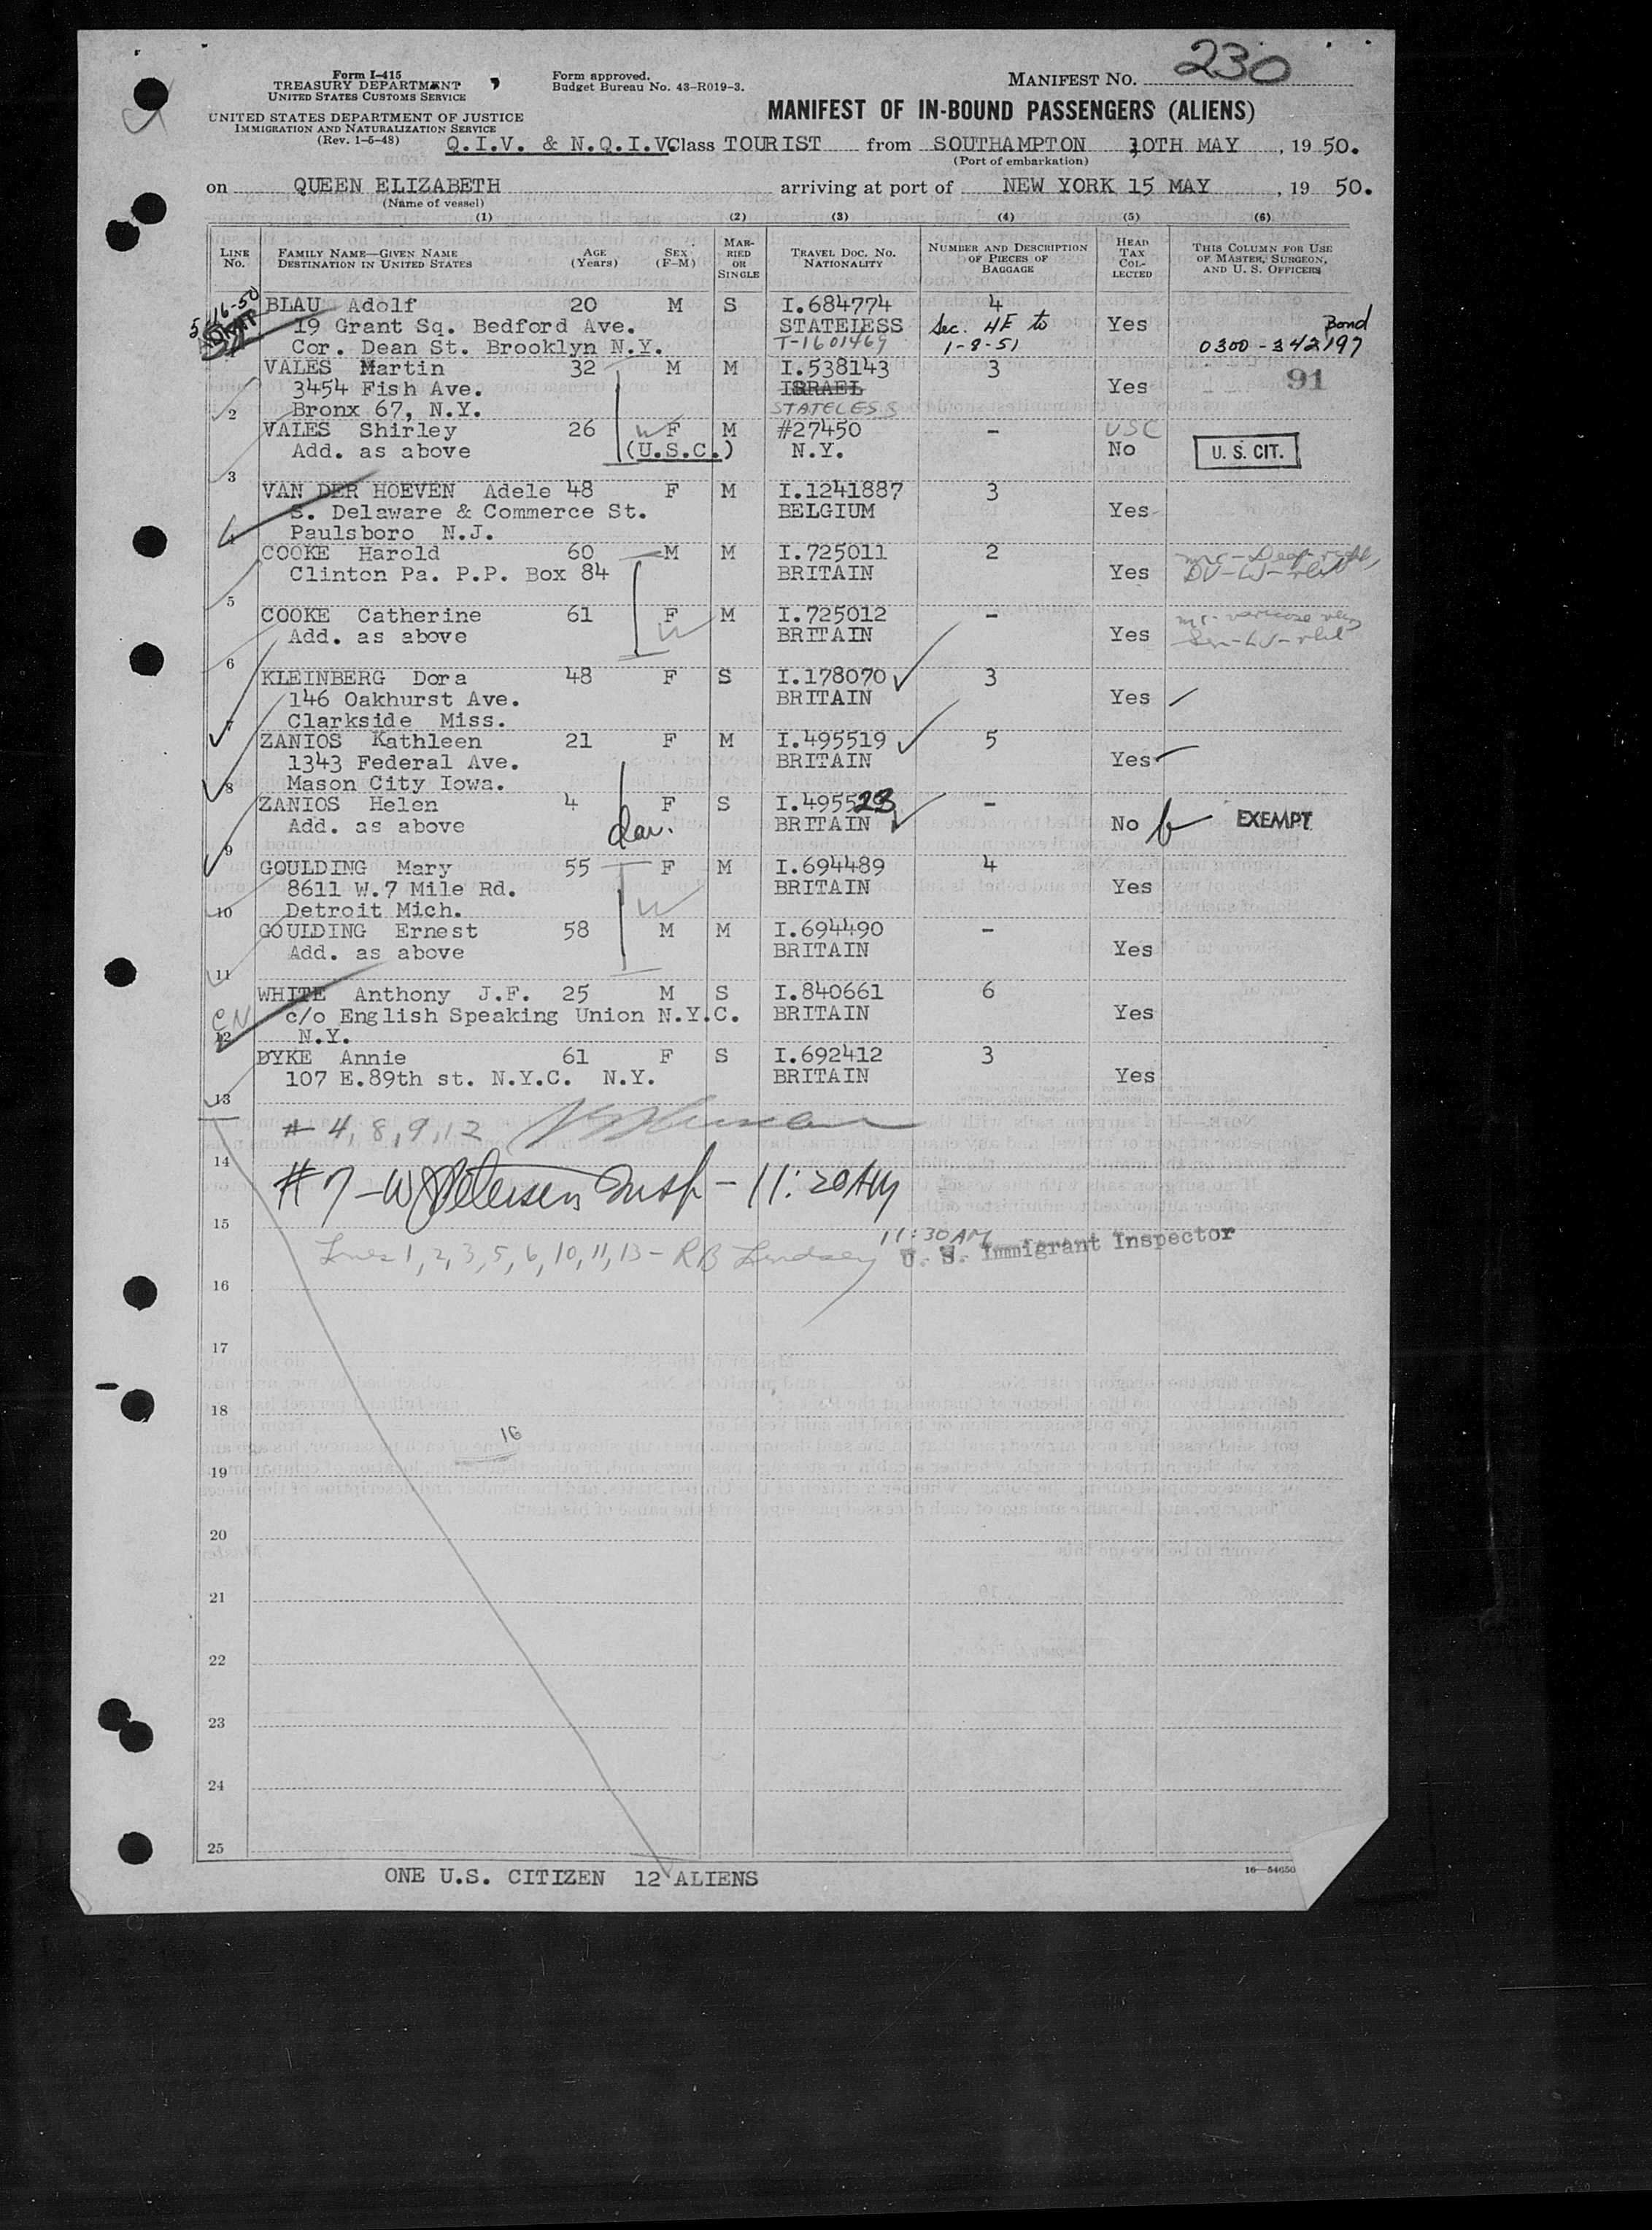 230
Form I-415
TREASURY DEPARTMENT
UNITED STATES CUSTOMS SERVICE
Form approved.
Budget Bureau No. 43-R019-3.
MANIFEST NO.
UNITED STATES DEPARTMENT OF JUSTICE
IMMIGRATION AND NATURALIZATION SERVICE
(Rev. 1-5-48)
MANIFEST OF IN-BOUND PASSENGERS (ALIENS)
Q.I.V. & N.Q.I.V. Class TOURIST from SOUTHAMPTON 10TH MAY, 19 50.
(Port of embarkation)
on QUEEN ELIZABETH arriving at port of NEW YORK 15 MAY, 19 50.
(Name of vessel)
(1) (2) (3) (4) (5) (6)
LINE No. FAMILY NAME—GIVEN NAME DESTINATION IN UNITED STATES AGE (Years) SEX (F-M) MARRIED OR SINGLE TRAVEL DOC. NO. NATIONALITY NUMBER AND DESCRIPTION OF PIECES OF BAGGAGE HEAD TAX COLLECTED THIS COLUMN FOR USE OF MASTER, SURGEON, AND U. S. OFFICERS
5-16-50
BLAU Adolf 20 M S I.684774 4
19 Grant Sq. Bedford Ave. STATELESS Sec. 4E to Yes Bond
Cor. Dean St. Brooklyn N.Y. T-1601469 1-8-51 0300-342197
VALES Martin 32 M M I.538143 3
3454 Fish Ave. ISRAEL Yes 91
2 Bronx 67, N.Y. STATELESS
VALES Shirley 26 W F M #27450 - USC
Add. as above (U.S.C.) N.Y. No U. S. CIT.
3
VAN DER HOEVEN Adele 48 F M I.1241887 3
S. Delaware & Commerce St. BELGIUM Yes
4 Paulsboro N.J.
COOKE Harold 60 M M I.725011 2
Clinton Pa. P.P. Box 84 BRITAIN Yes
5
COOKE Catherine 61 F M I.725012 - varicose
Add. as above W BRITAIN Yes
6
KLEINBERG Dora 48 F S I.178070 3
146 Oakhurst Ave. BRITAIN Yes
7 Clarkside Miss.
ZANIOS Kathleen 21 F M I.495519 5
1343 Federal Ave. BRITAIN Yes
8 Mason City Iowa.
ZANIOS Helen 4 F S I.495523 -
Add. as above dau. BRITAIN No EXEMPT
9
GOULDING Mary 55 F M I.694489 4
8611 W.7 Mile Rd. BRITAIN Yes
10 Detroit Mich. W
GOULDING Ernest 58 M M I.694490 -
Add. as above BRITAIN Yes
11
WHITE Anthony J.F. 25 M S I.840661 6
CN c/o English Speaking Union N.Y.C. BRITAIN Yes
12 N.Y.
DYKE Annie 61 F S I.692412 3
107 E.89th st. N.Y.C. N.Y. BRITAIN Yes
13
# 4, 8, 9, 12
14
#7 - W Petersen Insp - 11:20AM
15
11:30AM
Lines 1, 2, 3, 5, 6, 10, 11, 13 - RB Lindsey U. S. Immigrant Inspector
16
17
18
16
19
20
21
22
23
24
25
ONE U.S. CITIZEN 12 ALIENS
16—54650